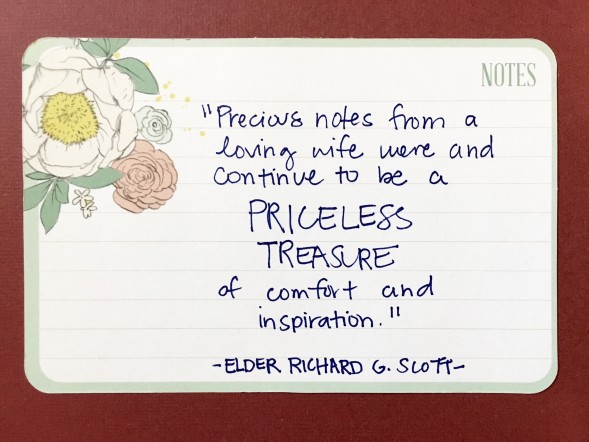 NOTES
"Precious notes from a
loving wife were and
continue to be a
PRICELESS
TREASURE
of comfort and
inspiration."
-ELDER RICHARD G. SCOTT-